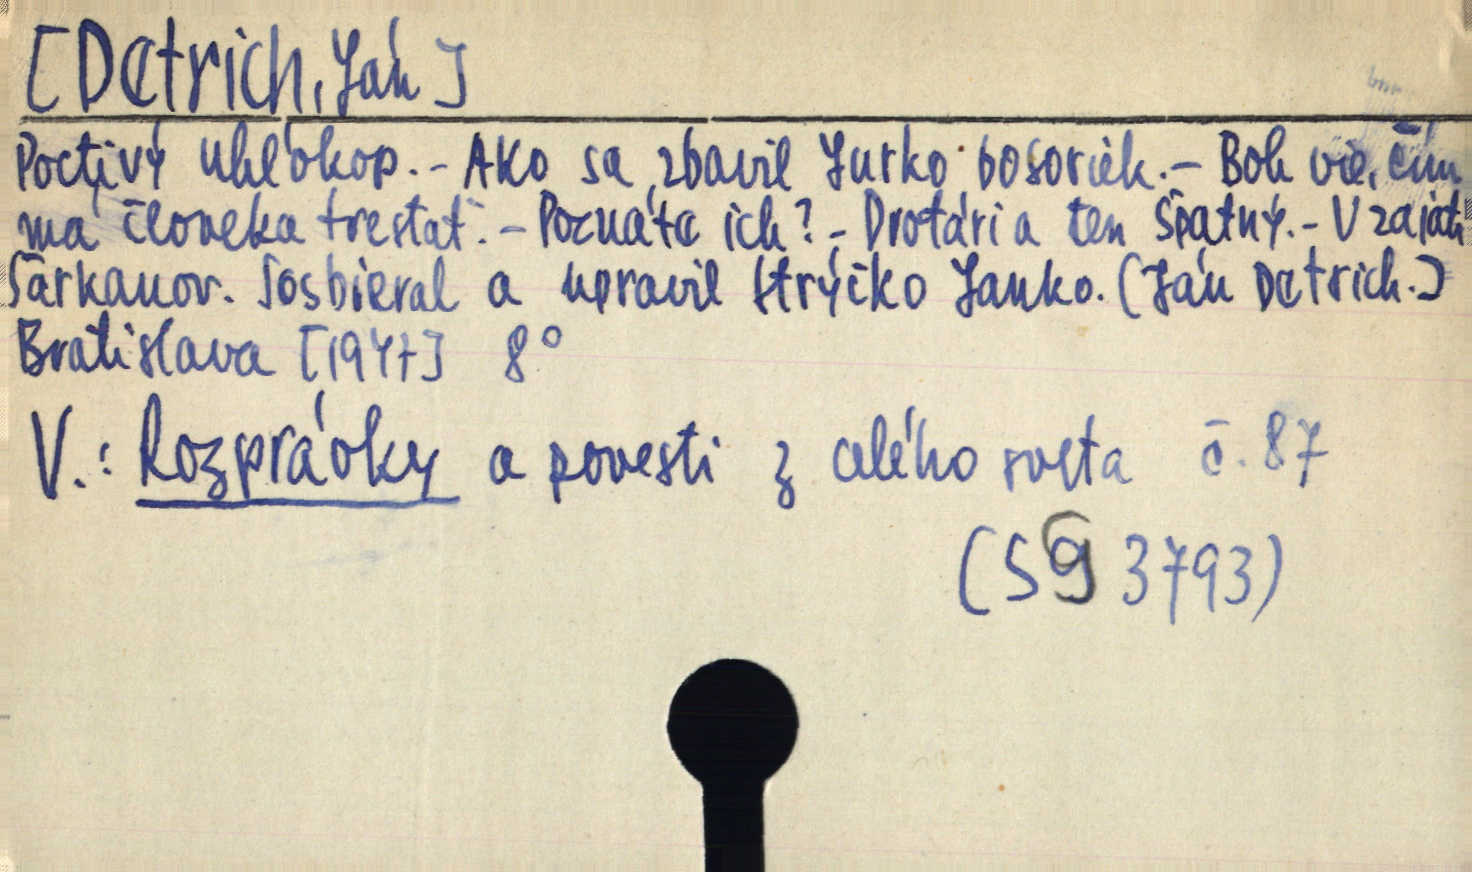 [Detrich, Ján]
Poctivý uhľokop. - Ako sa zbavil Jurko bosoriek. - Boh vie, čím
má človeka trestať. - Poznáte ich? - Drotári a ten špatný. - V zajatí
šarkanov. Sosbieral a upravil strýčko Janko. (Ján Detrich.)
Bratislava [1947] 8°
V.: Rozprávky a povesti z celého sveta č. 87
(S9 3793)